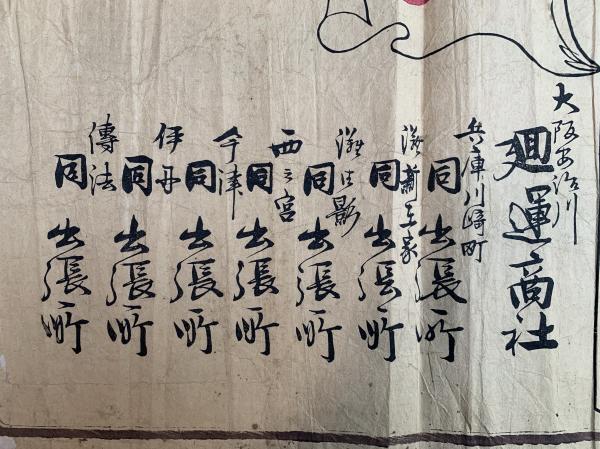 大阪安治川
廻運商社
兵庫川崎町
同出張所
灘新在家
同出張所
灘御影
同出張所
西之宮
同出張所
今津
同出張所
伊丹
同出張所
傳法
同出張所